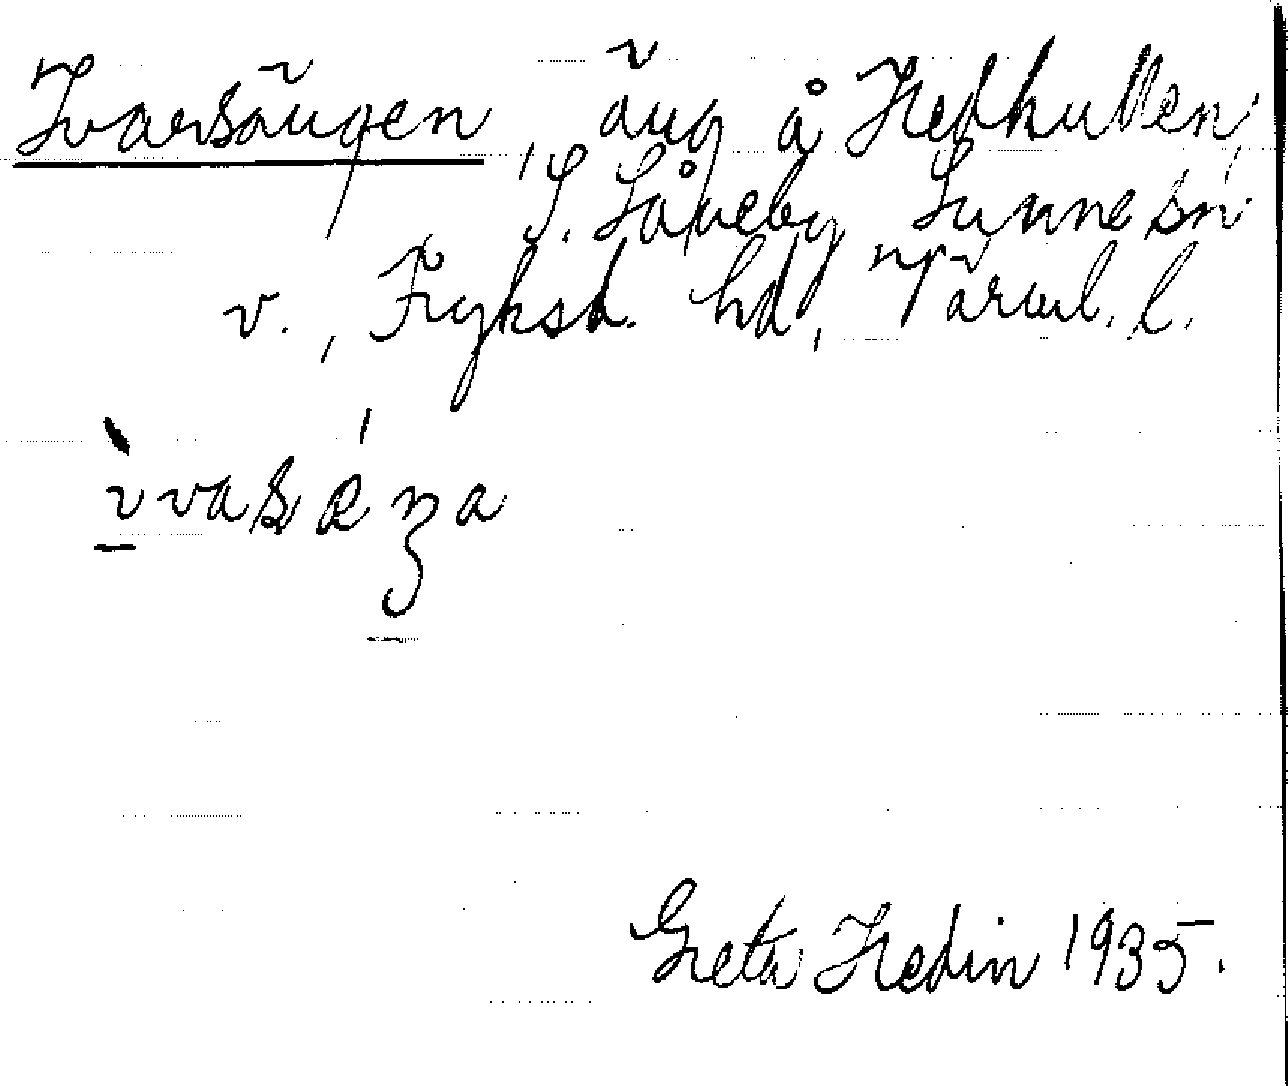 Ivarsängen, äng å Hedkullen,
S. Låneby, Sunne sn
v., Fryksd. hd, Värml. l.
Greta Hedin 1935.